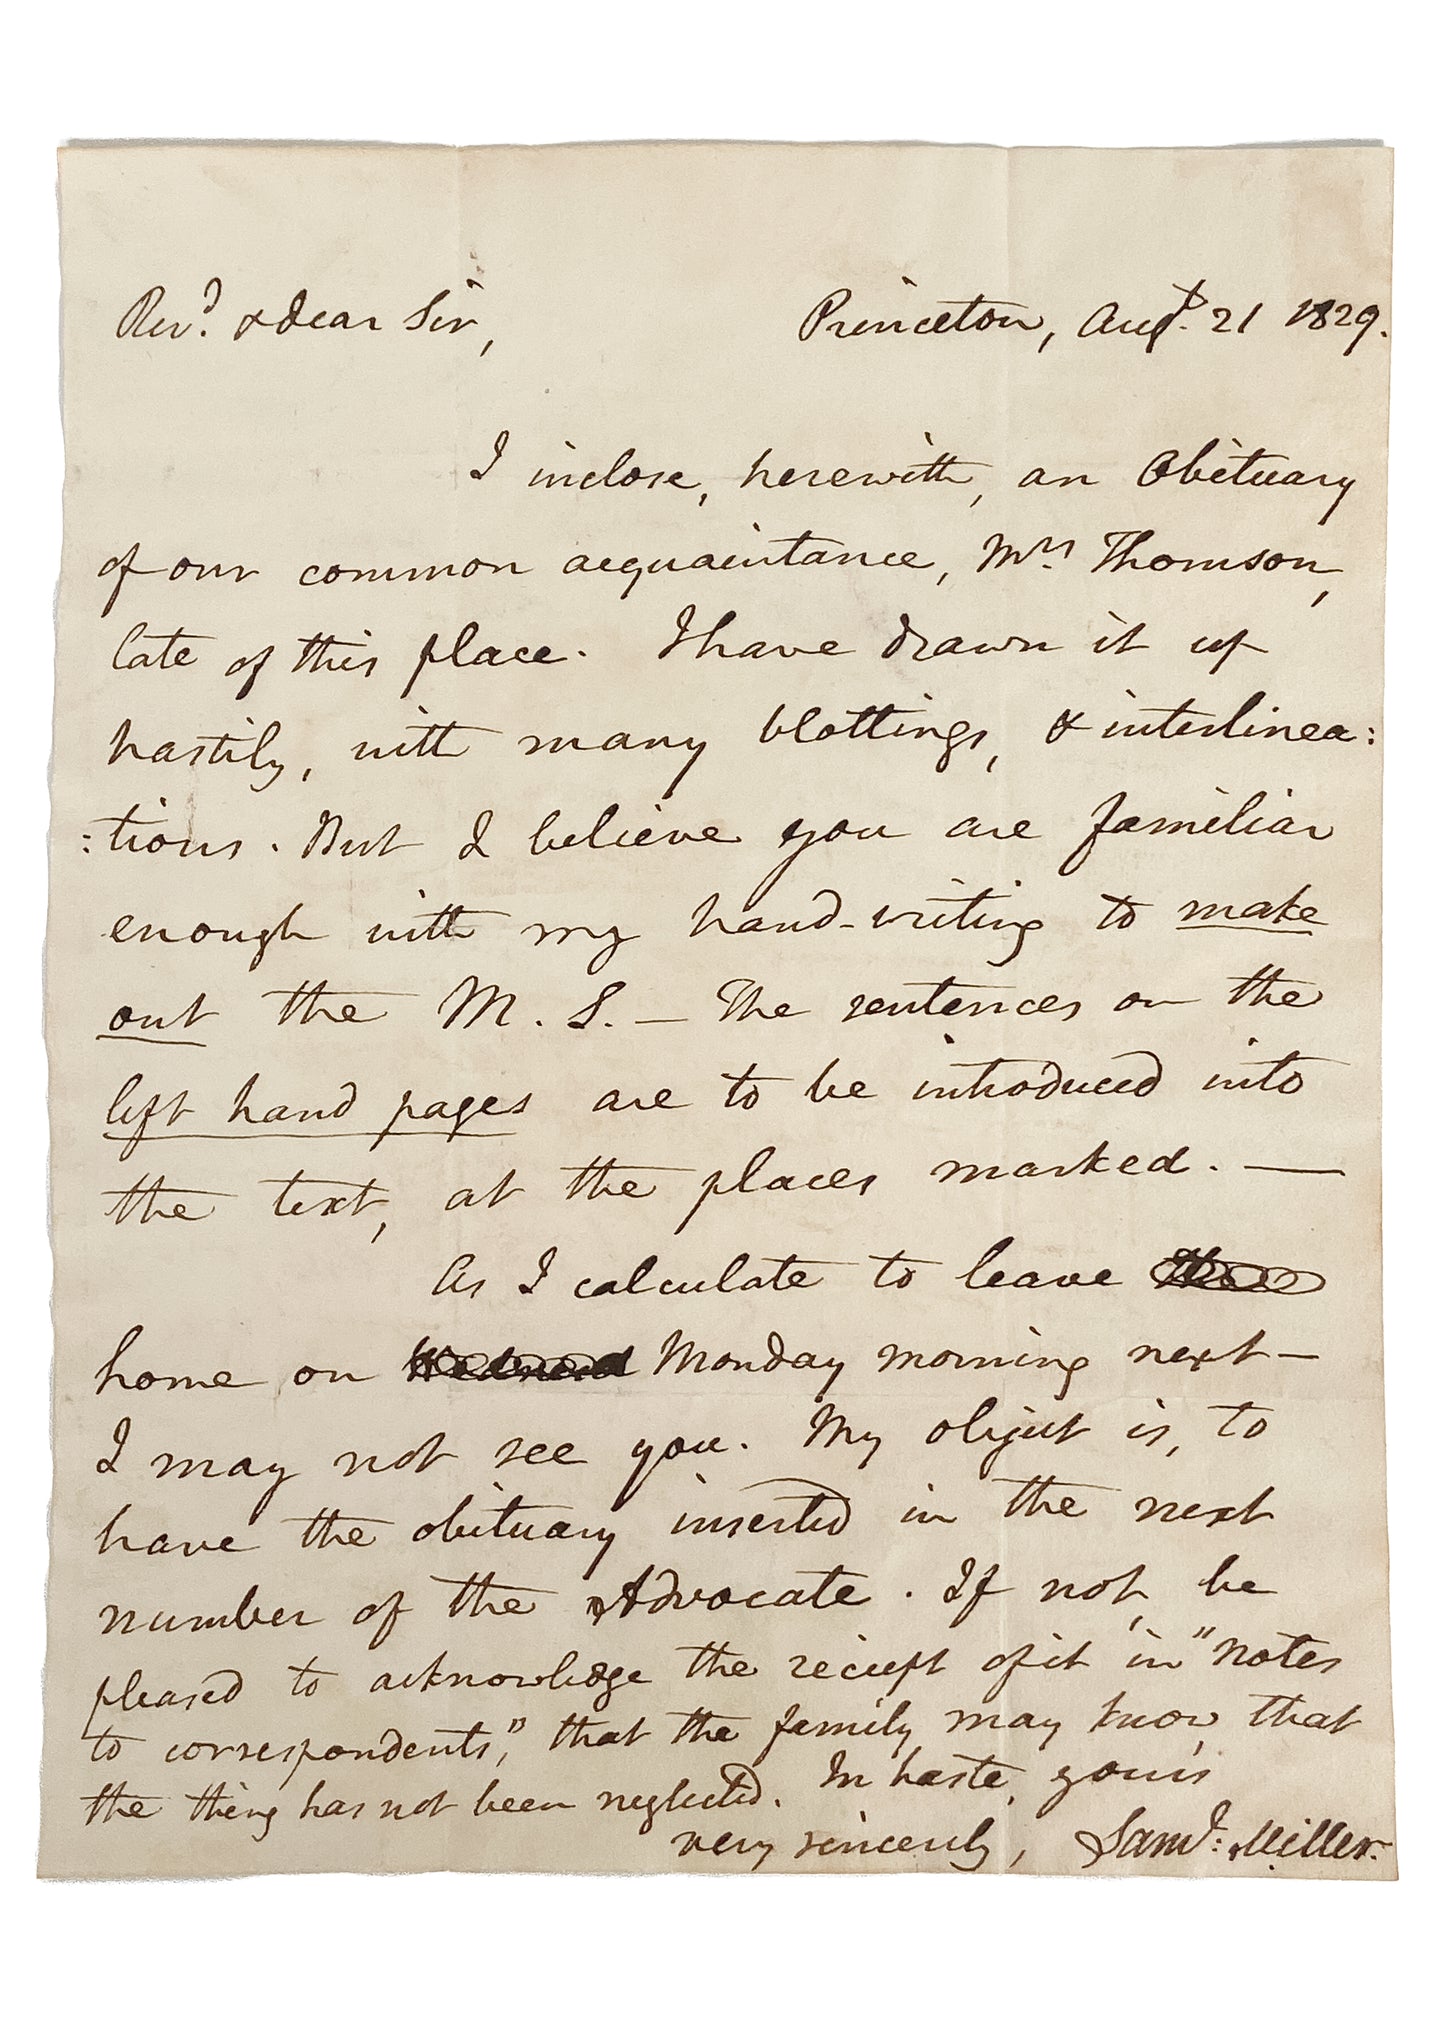 Revd. & dear Sir,
Princeton, Augt. 21 1829.
I inclose, herewith, an Obituary
of our common acquaintance, Mrs. Thomson,
late of this place. I have drawn it up
hastily, with many blottings, & interlinea:
:tions. But I believe you are familiar
enough with my hand-writing to make
out the M. S. — The sentences on the
left hand pages are to be introduced into
the text, at the places marked. —
As I calculate to leave
home on Monday morning next —
I may not see you. My object is, to
have the obituary inserted in the next
number of the Advocate. If not, be
pleased to acknowledge the reciept of it in "Notes
to correspondents," that the family may know that
the thing has not been neglected. In haste, yours
very sincerely, Saml: Miller.